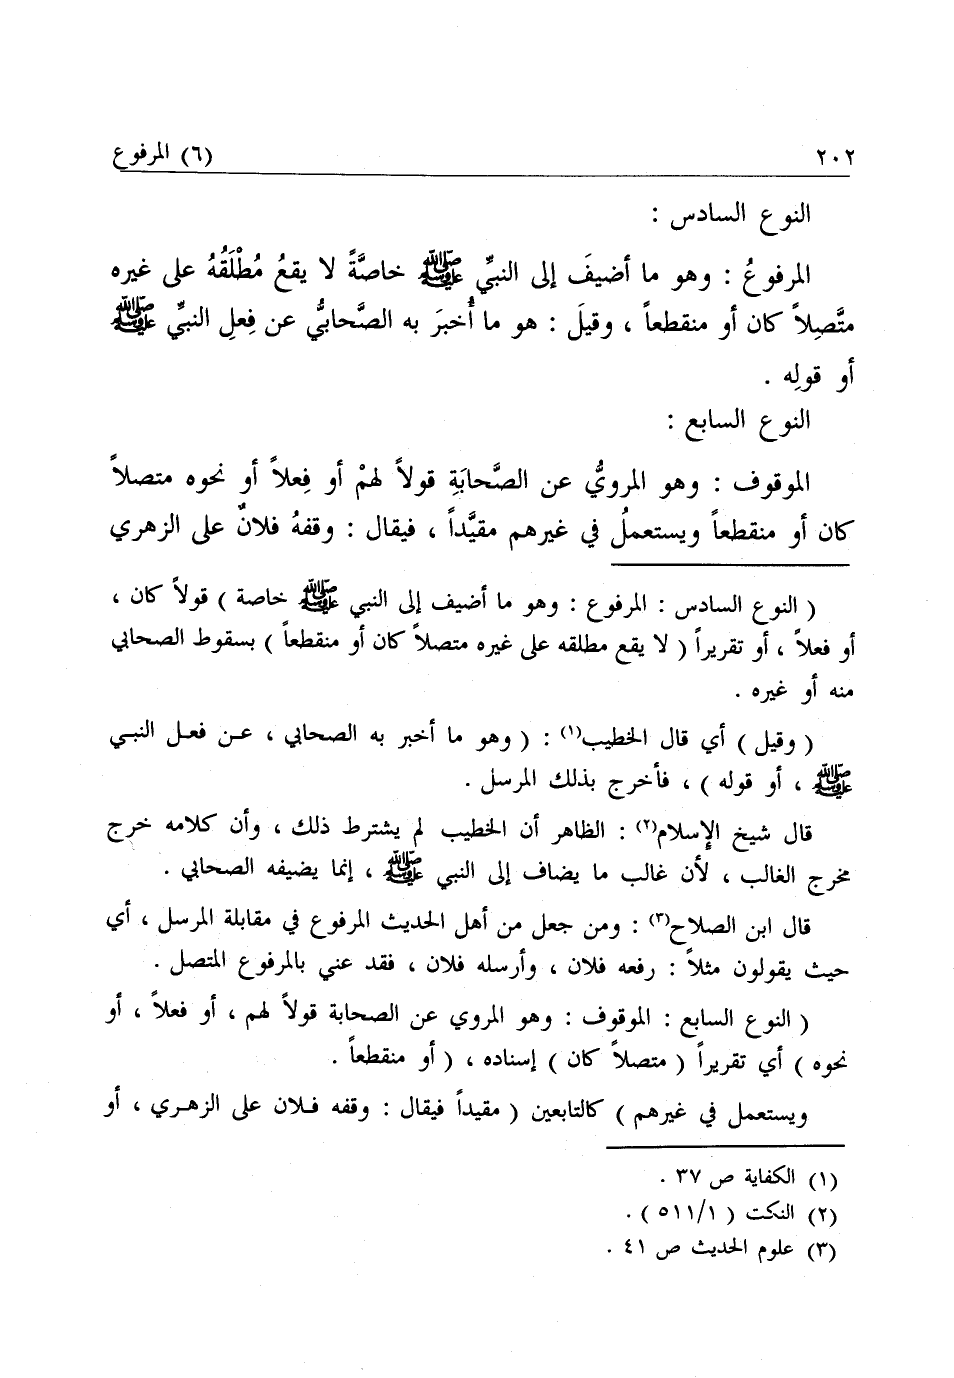 ٢٠٢ (٦) المرفوع
النوع السادس :
المرفوعُ : وهو ما أضيفَ إلى النبيِّ ﷺ خاصَّةً لا يقعُ مُطْلَقُهُ على غيره
متَّصِلاً كان أو منقطعاً ، وقيلَ : هو ما أُخبرَ به الصَّحابيُّ عن فِعلِ النبيِّ ﷺ
أو قولِه .
النوع السابع :
الموقوف : وهو المرويُّ عن الصَّحابَةِ قولاً لهمْ أو فِعلاً أو نحوه متصلاً
كان أو منقطعاً ويستعملُ في غيرهم مقيَّداً ، فيقال : وقفهُ فلانٌ على الزهري
( النوع السادس : المرفوع : وهو ما أضيف إلى النبي ﷺ خاصة ) قولاً كان ،
أو فعلاً ، أو تقريراً ( لا يقع مطلقه على غيره متصلاً كان أو منقطعاً ) بسقوط الصحابي
منه أو غيره .
( وقيل ) أي قال الخطيب(١) : ( وهو ما أخبر به الصحابي ، عن فعل النبي
ﷺ ، أو قوله ) ، فأخرج بذلك المرسل .
قال شيخ الإسلام(٢) : الظاهر أن الخطيب لم يشترط ذلك ، وأن كلامه خرج
مخرج الغالب ، لأن غالب ما يضاف إلى النبي ﷺ ، إنما يضيفه الصحابي .
قال ابن الصلاح(٣) : ومن جعل من أهل الحديث المرفوع في مقابلة المرسل ، أي
حيث يقولون مثلاً : رفعه فلان ، وأرسله فلان ، فقد عني بالمرفوع المتصل .
( النوع السابع : الموقوف : وهو المروي عن الصحابة قولاً لهم ، أو فعلاً ، أو
نحوه ) أي تقريراً ( متصلاً كان ) إسناده ، ( أو منقطعاً .
ويستعمل في غيرهم ) كالتابعين ( مقيداً فيقال : وقفه فلان على الزهري ، أو
(١) الكفاية ص ٣٧ .
(٢) النكت ( ٥١١/١ ) .
(٣) علوم الحديث ص ٤١ .